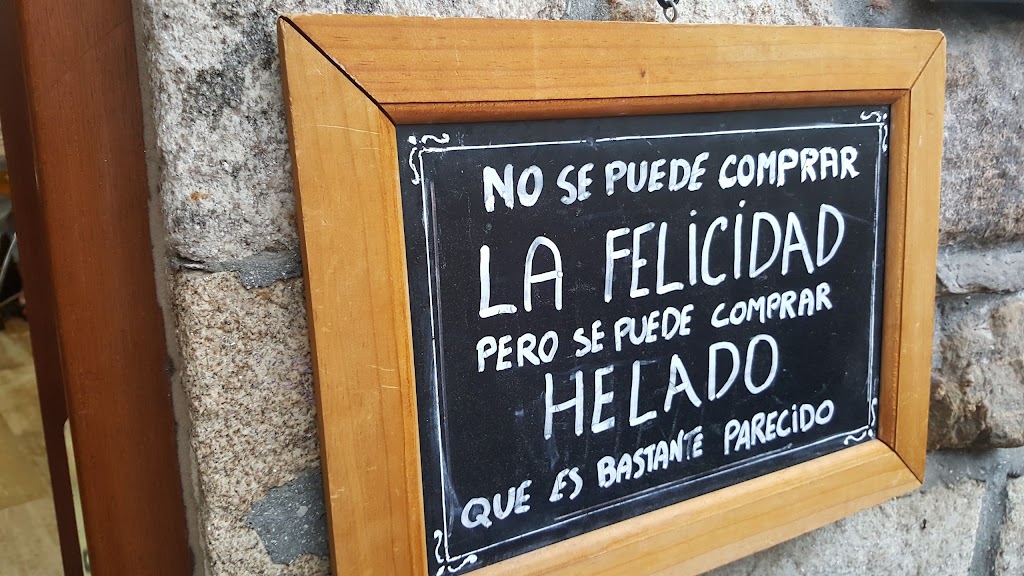 NO SE PUEDE COMPRAR
LA FELICIDAD
PERO SE PUEDE COMPRAR
HELADO
QUE ES BASTANTE PARECIDO